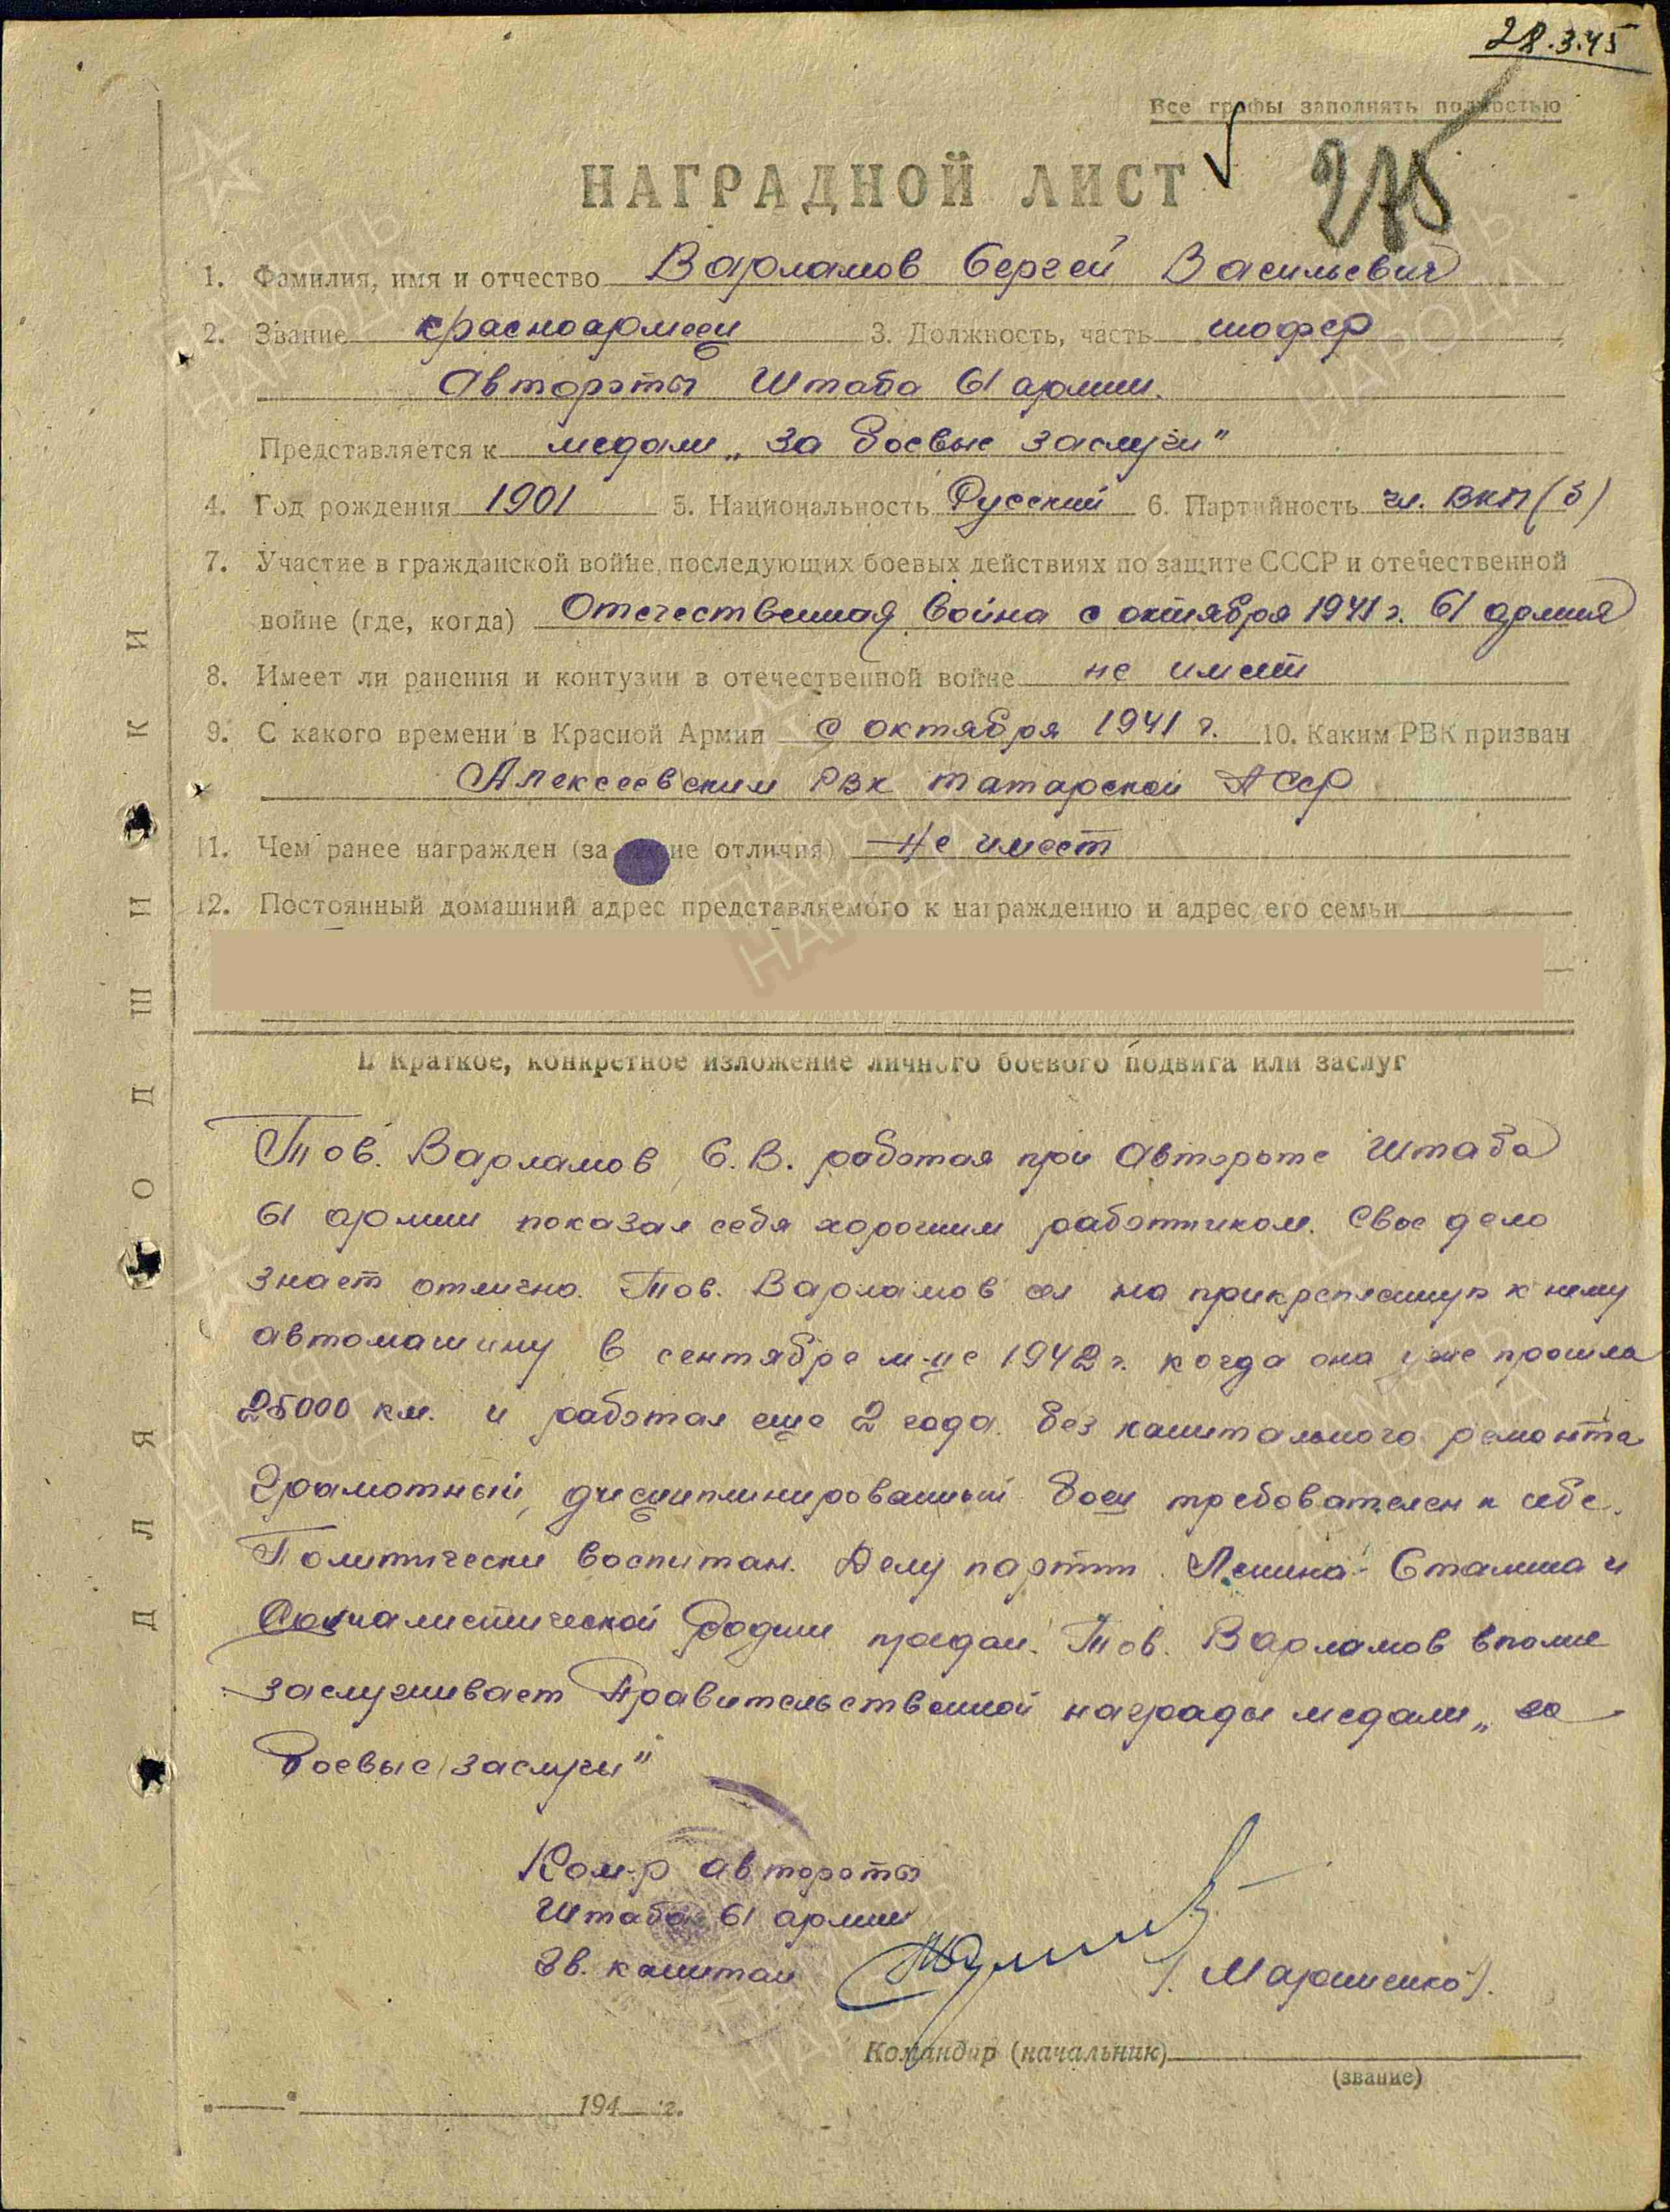 28.3.45
Все графы заполнять полностью
НАГРАДНОЙ ЛИСТ
275
1. Фамилия, имя и отчество Варламов Сергей Васильевич
2. Звание красноармеец 3. Должность, часть шофер
Автороты Штаба 61 армии.
Представляется к медали „За боевые заслуги"
4. Год рождения 1901 5. Национальность Русский 6. Партийность чл. ВКП(б)
7. Участие в гражданской войне, последующих боевых действиях по защите СССР и отечественной
войне (где, когда) Отечественная война с октября 1941 г. 61 армия
8. Имеет ли ранения и контузии в отечественной войне не имеет
9. С какого времени в Красной Армии с октября 1941 г. 10. Каким РВК призван
Алексеевским РВК Татарской АССР
11. Чем ранее награжден (за какие отличия) Не имеет
12. Постоянный домашний адрес представляемого к награждению и адрес его семьи
I. Краткое, конкретное изложение личного боевого подвига или заслуг
Тов. Варламов С.В. работая при Автороте Штаба
61 армии показал себя хорошим работником. Свое дело
знает отлично. Тов. Варламов сел на прикрепленную к нему
автомашину в сентябре м-це 1942 г. когда она уже прошла
25000 км. и работал еще 2 года без капитального ремонта
Грамотный, дисциплинированный боец требователен к себе.
Политически воспитан. Делу партии Ленина-Сталина и
Социалистической Родине предан. Тов. Варламов вполне
заслуживает Правительственной награды медали „за
боевые заслуги"
Ком-р автороты
Штаба 61 армии
Гв. капитан /Марииенко/.
Командир (начальник)
(звание)
„ " 194 г.
ДЛЯ ПОДШИВКИ
ПАМЯТЬ
НАРОДА